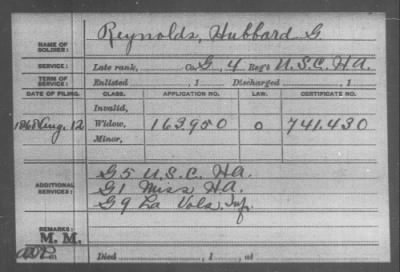 NAME OF SOLDIER: Reynolds, Hubbard G
SERVICE: Late rank, Co. G, 4 Reg't U.S.C. H A.
TERM OF SERVICE: Enlisted , 1 Discharged , 1
DATE OF FILING. CLASS. APPLICATION NO. LAW. CERTIFICATE NO.
Invalid,
1868 Aug. 12 Widow, 163.950 0 741.430
Minor,
ADDITIONAL SERVICES: G 5 U.S.C. H A.
G 1 Miss H A.
G 9 La Vols. Inf.
REMARKS:
M. M.
Died , 1 , at